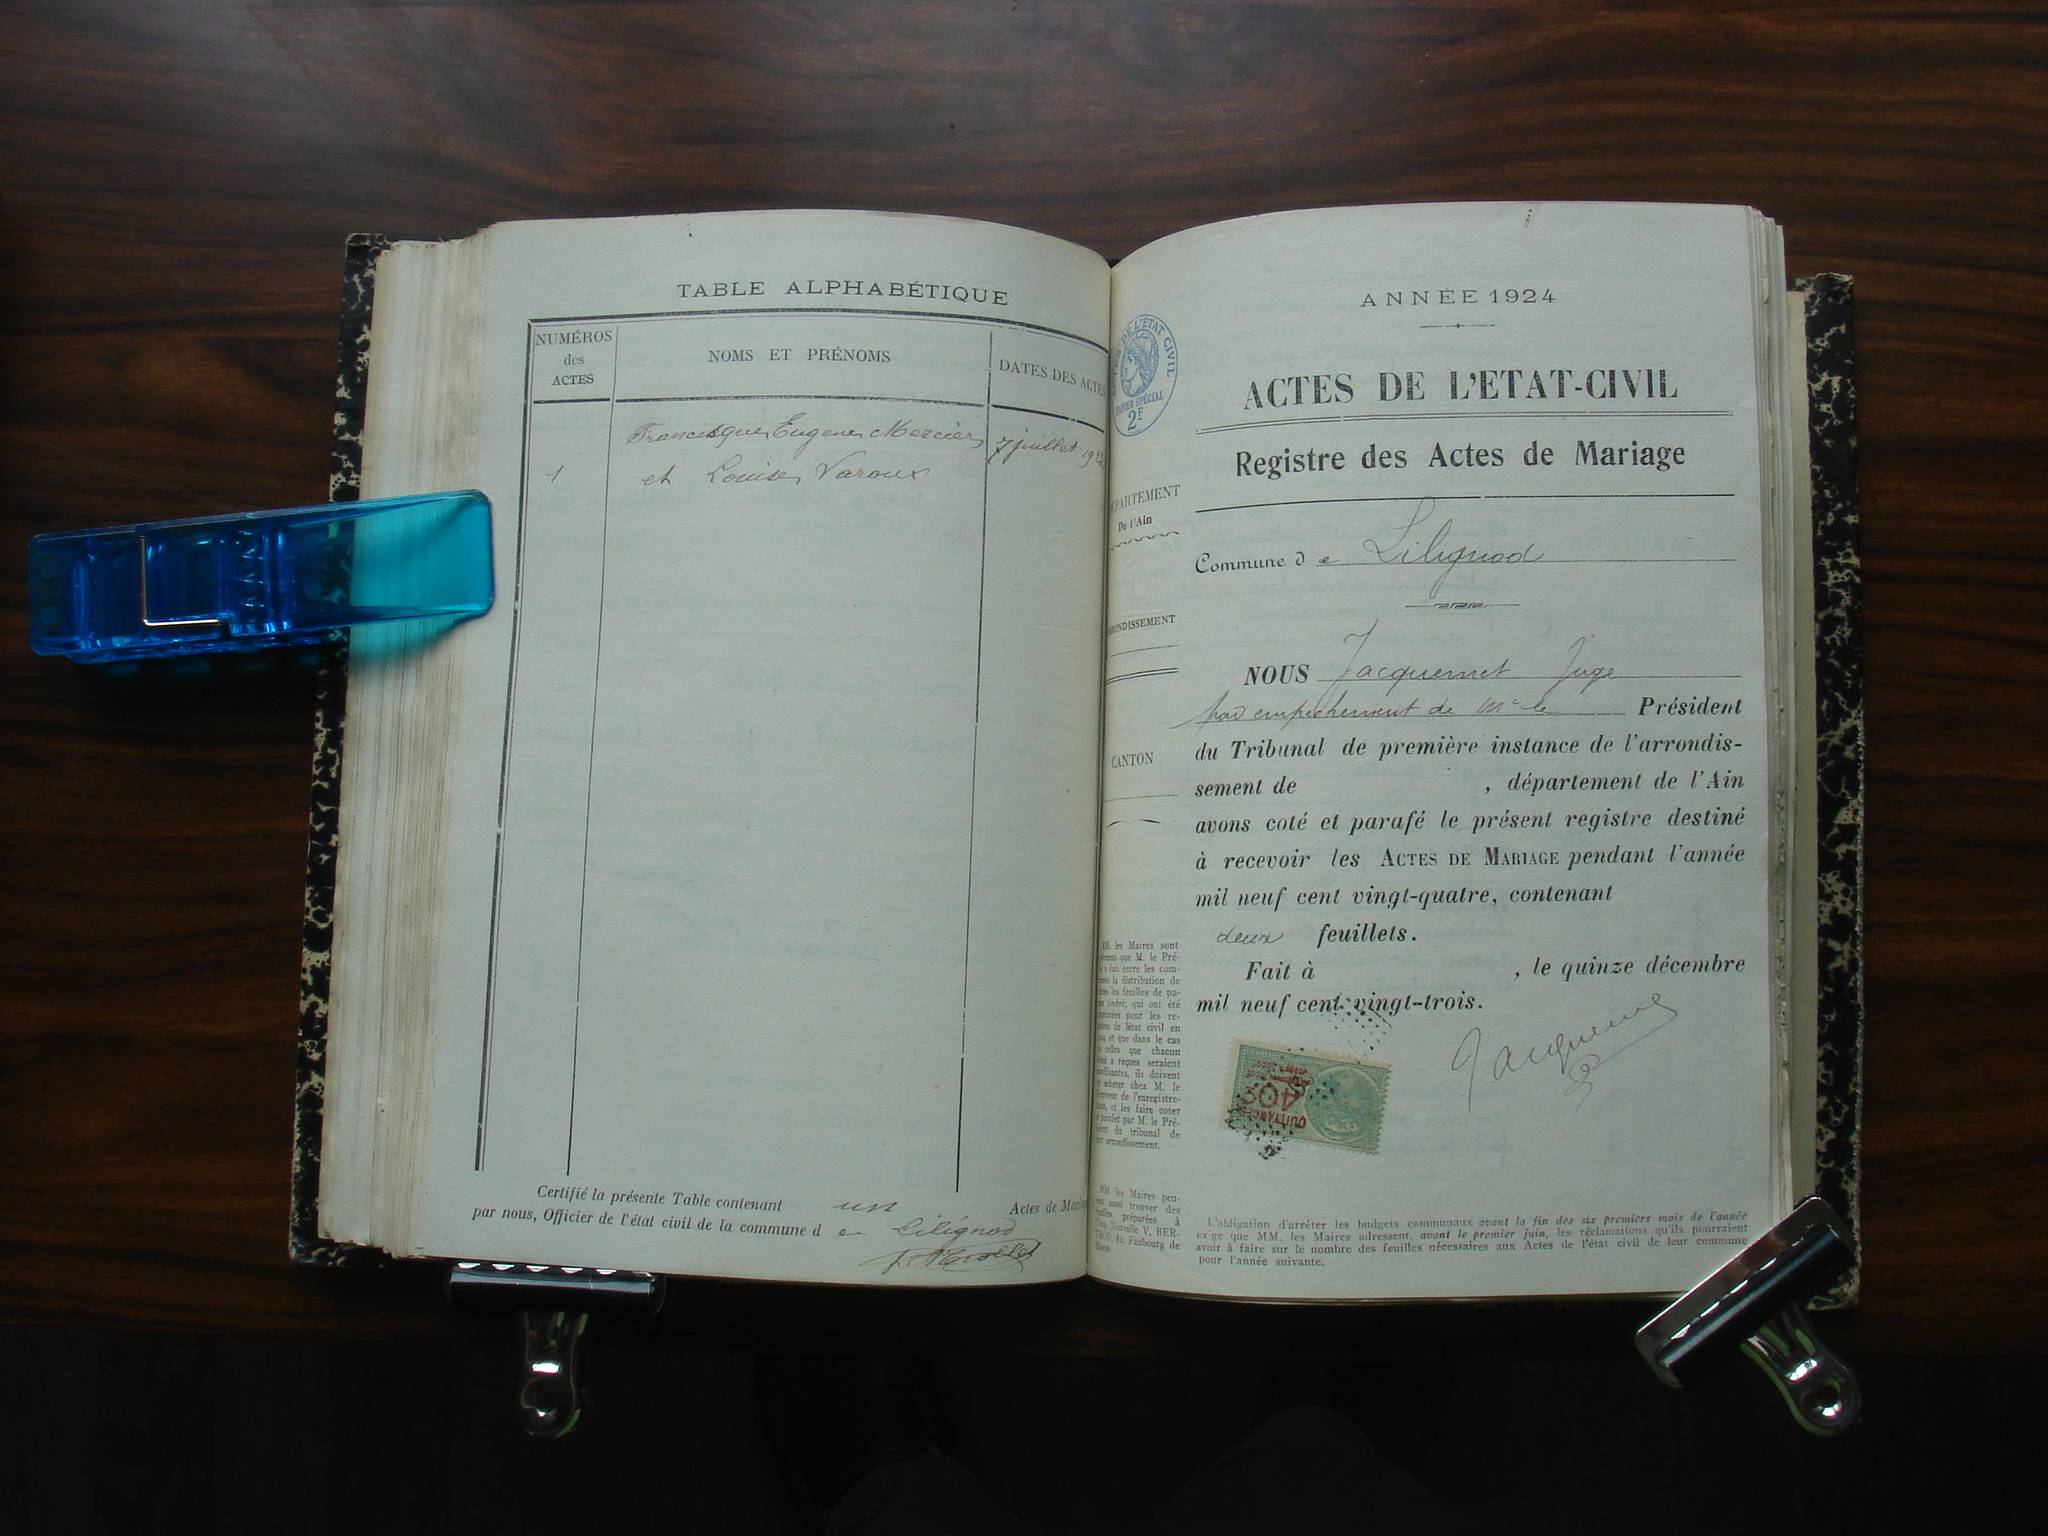 TABLE ALPHABÉTIQUE
NUMÉROS
des
ACTES
NOMS ET PRÉNOMS
DATES DES ACTES
Francisque Eugène Mercier 7 juillet
1 et Louise Varoux
Certifié la présente Table contenant un Actes de Maria
par nous, Officier de l'état civil de la commune d e Lilignod
ANNÉE 1924
DE L'ÉTAT CIVIL
PAPIER SPÉCIAL
2F
ACTES DE L'ETAT-CIVIL
Registre des Actes de Mariage
DÉPARTEMENT
De l'Ain
Commune d e Lilignod
ARRONDISSEMENT
CANTON
NOUS Jacquemet Juge
par empechement de Mr le Président
du Tribunal de première instance de l'arrondis-
sement de , département de l'Ain
avons coté et parafé le présent registre destiné
à recevoir les ACTES DE MARIAGE pendant l'année
mil neuf cent vingt-quatre, contenant
deux feuillets.
Fait à , le quinze décembre
mil neuf cent vingt-trois.
Jacquemet
QUITTANCES
40c
MM. les Maires sont
que M. le Pré-
a fait entre les com-
la distribution de
les feuilles de pa-
timbré, qui ont été
pour les re-
de létat civil en
et que dans le cas
celles que chacun
a reçues seraient
ils doivent
acheter chez M. le
de l'enregistre-
et les faire coter
parafer par M. le Pré-
du tribunal de
arrondissement.
MM. les Maires peu-
aussi trouver des
préparées à
Nouvelle V. BER-
THOD, Faubourg de
L'obligation d'arrêter les budgets communaux avant la fin des six premiers mois de l'année
ex'ge que MM. les Maires adressent, avant le premier juin, les réclamations qu'ils pourraient
avoir à faire sur le nombre des feuilles nécessaires aux Actes de l'état civil de leur commune
pour l'année suivante.